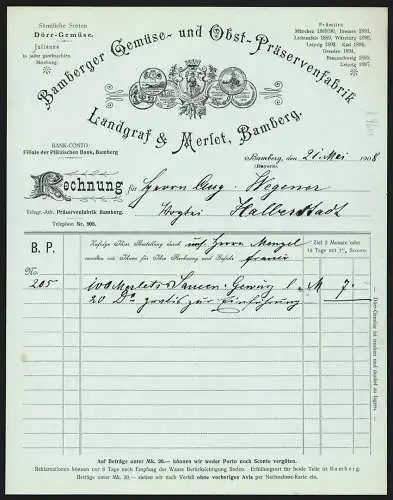 Sämtliche Sorten
Dörr-Gemüse.
Julienne
in jeder gewünschten
Mischung.
Prämiirt
München 1889/90, Bremen 1891,
Lichtenfels 1889, Würzburg 1893,
Leipzig 1893, Kiel 1894,
Dresden 1894,
Braunschweig 1895,
Leipzig 1897.
Bamberger Gemüse- und Obst-Präservenfabrik
Landgraf & Merlet, Bamberg.
BANK-CONTO:
Filiale der Pfälzischen Bank, Bamberg
Bamberg, den 26. Mai 1908
(Bayern).
Rechnung für Herrn Aug. Wegener
Telegr.-Adr. Präservenfabrik Bamberg.
Telephon Nr. 508.
Vogtei Halberstadt
B. P.
Zufolge Ihrer Bestellung durch Herrn Mengel
sandten wir Ihnen für Ihre Rechnung und Gefahr franco
Ziel 2 Monate oder
14 Tage mit 1% Sconto.
No
205 100 Merlets Saucen-Gewürz M 7.-
20 Do gratis zur Einführung
Dörr-Gemüse ist trocken und dunkel zu lagern.
Auf Beträge unter Mk. 20.— können wir weder Porto noch Sconto vergüten.
Reklamationen können nur 8 Tage nach Empfang der Waare Berücksichtigung finden. Erfüllungsort für beide Teile ist Bamberg.
Beträge unter Mk. 20.— ziehen wir nach Verfall ohne vorherigen Avis per Nachnahme-Karte ein.